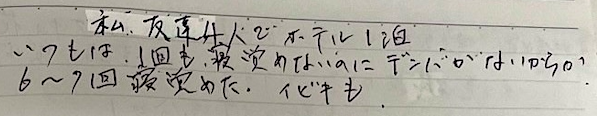 私.友達4人でホテル1泊
いつもは.1回も.寝覚めないのにデンパがないからか
6〜7回寝覚めた.イビキも.